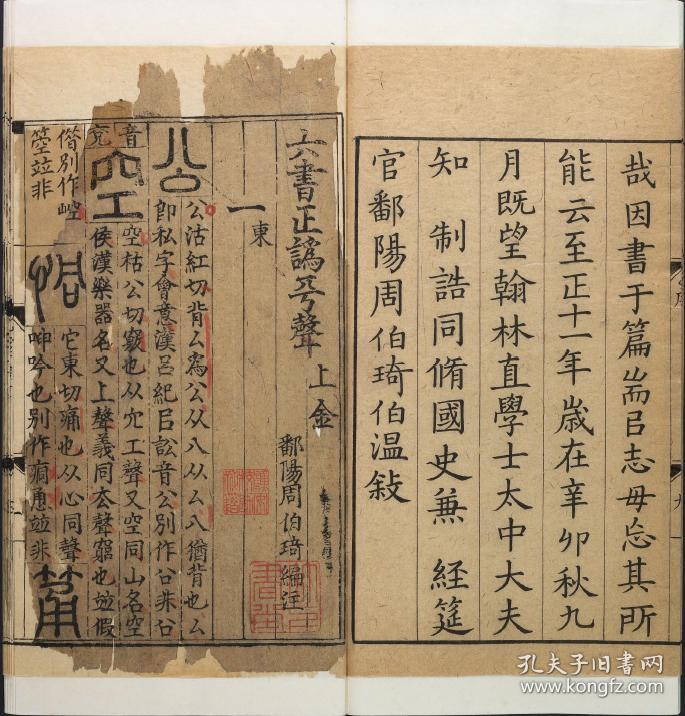 哉因書于篇耑㠯志毋忘其所
能云至正十一年歲在辛卯秋九
月既望翰林直學士太中大夫
知 制誥同脩國史兼 經筵
官鄱陽周伯琦伯溫敍
六書正譌平聲上 金
鄱陽周伯琦編注
一東
公
公沽紅切背厶為公从八从厶八猶背也厶
卽私字會意漢呂紀㠯訟音公別作㕣非
音
空
空枯公切竅也从穴工聲又空同山名空
侯漢樂器名又上聲義同去聲窮也竝假
借別作崆
箜竝非
恫
它東切痛也从心同聲
呻吟也別作痌恿竝非
孔夫子旧书网
www.kongfz.com